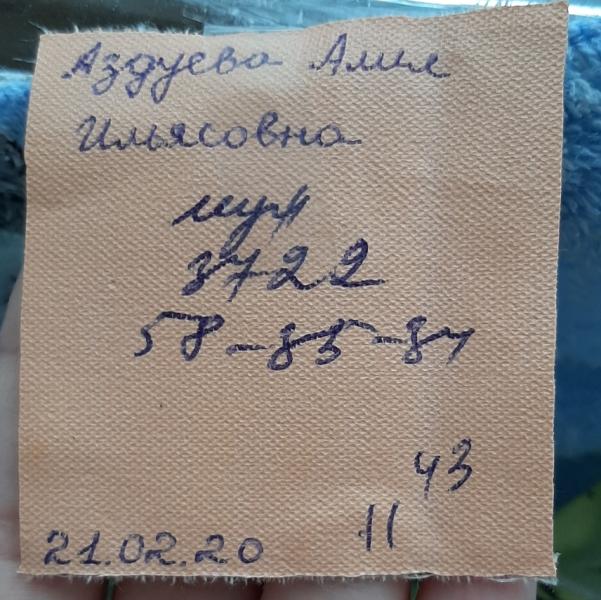 Аздуева Амил
Ильясовна
муж
3722
58-85-84
43
11
21.02.20